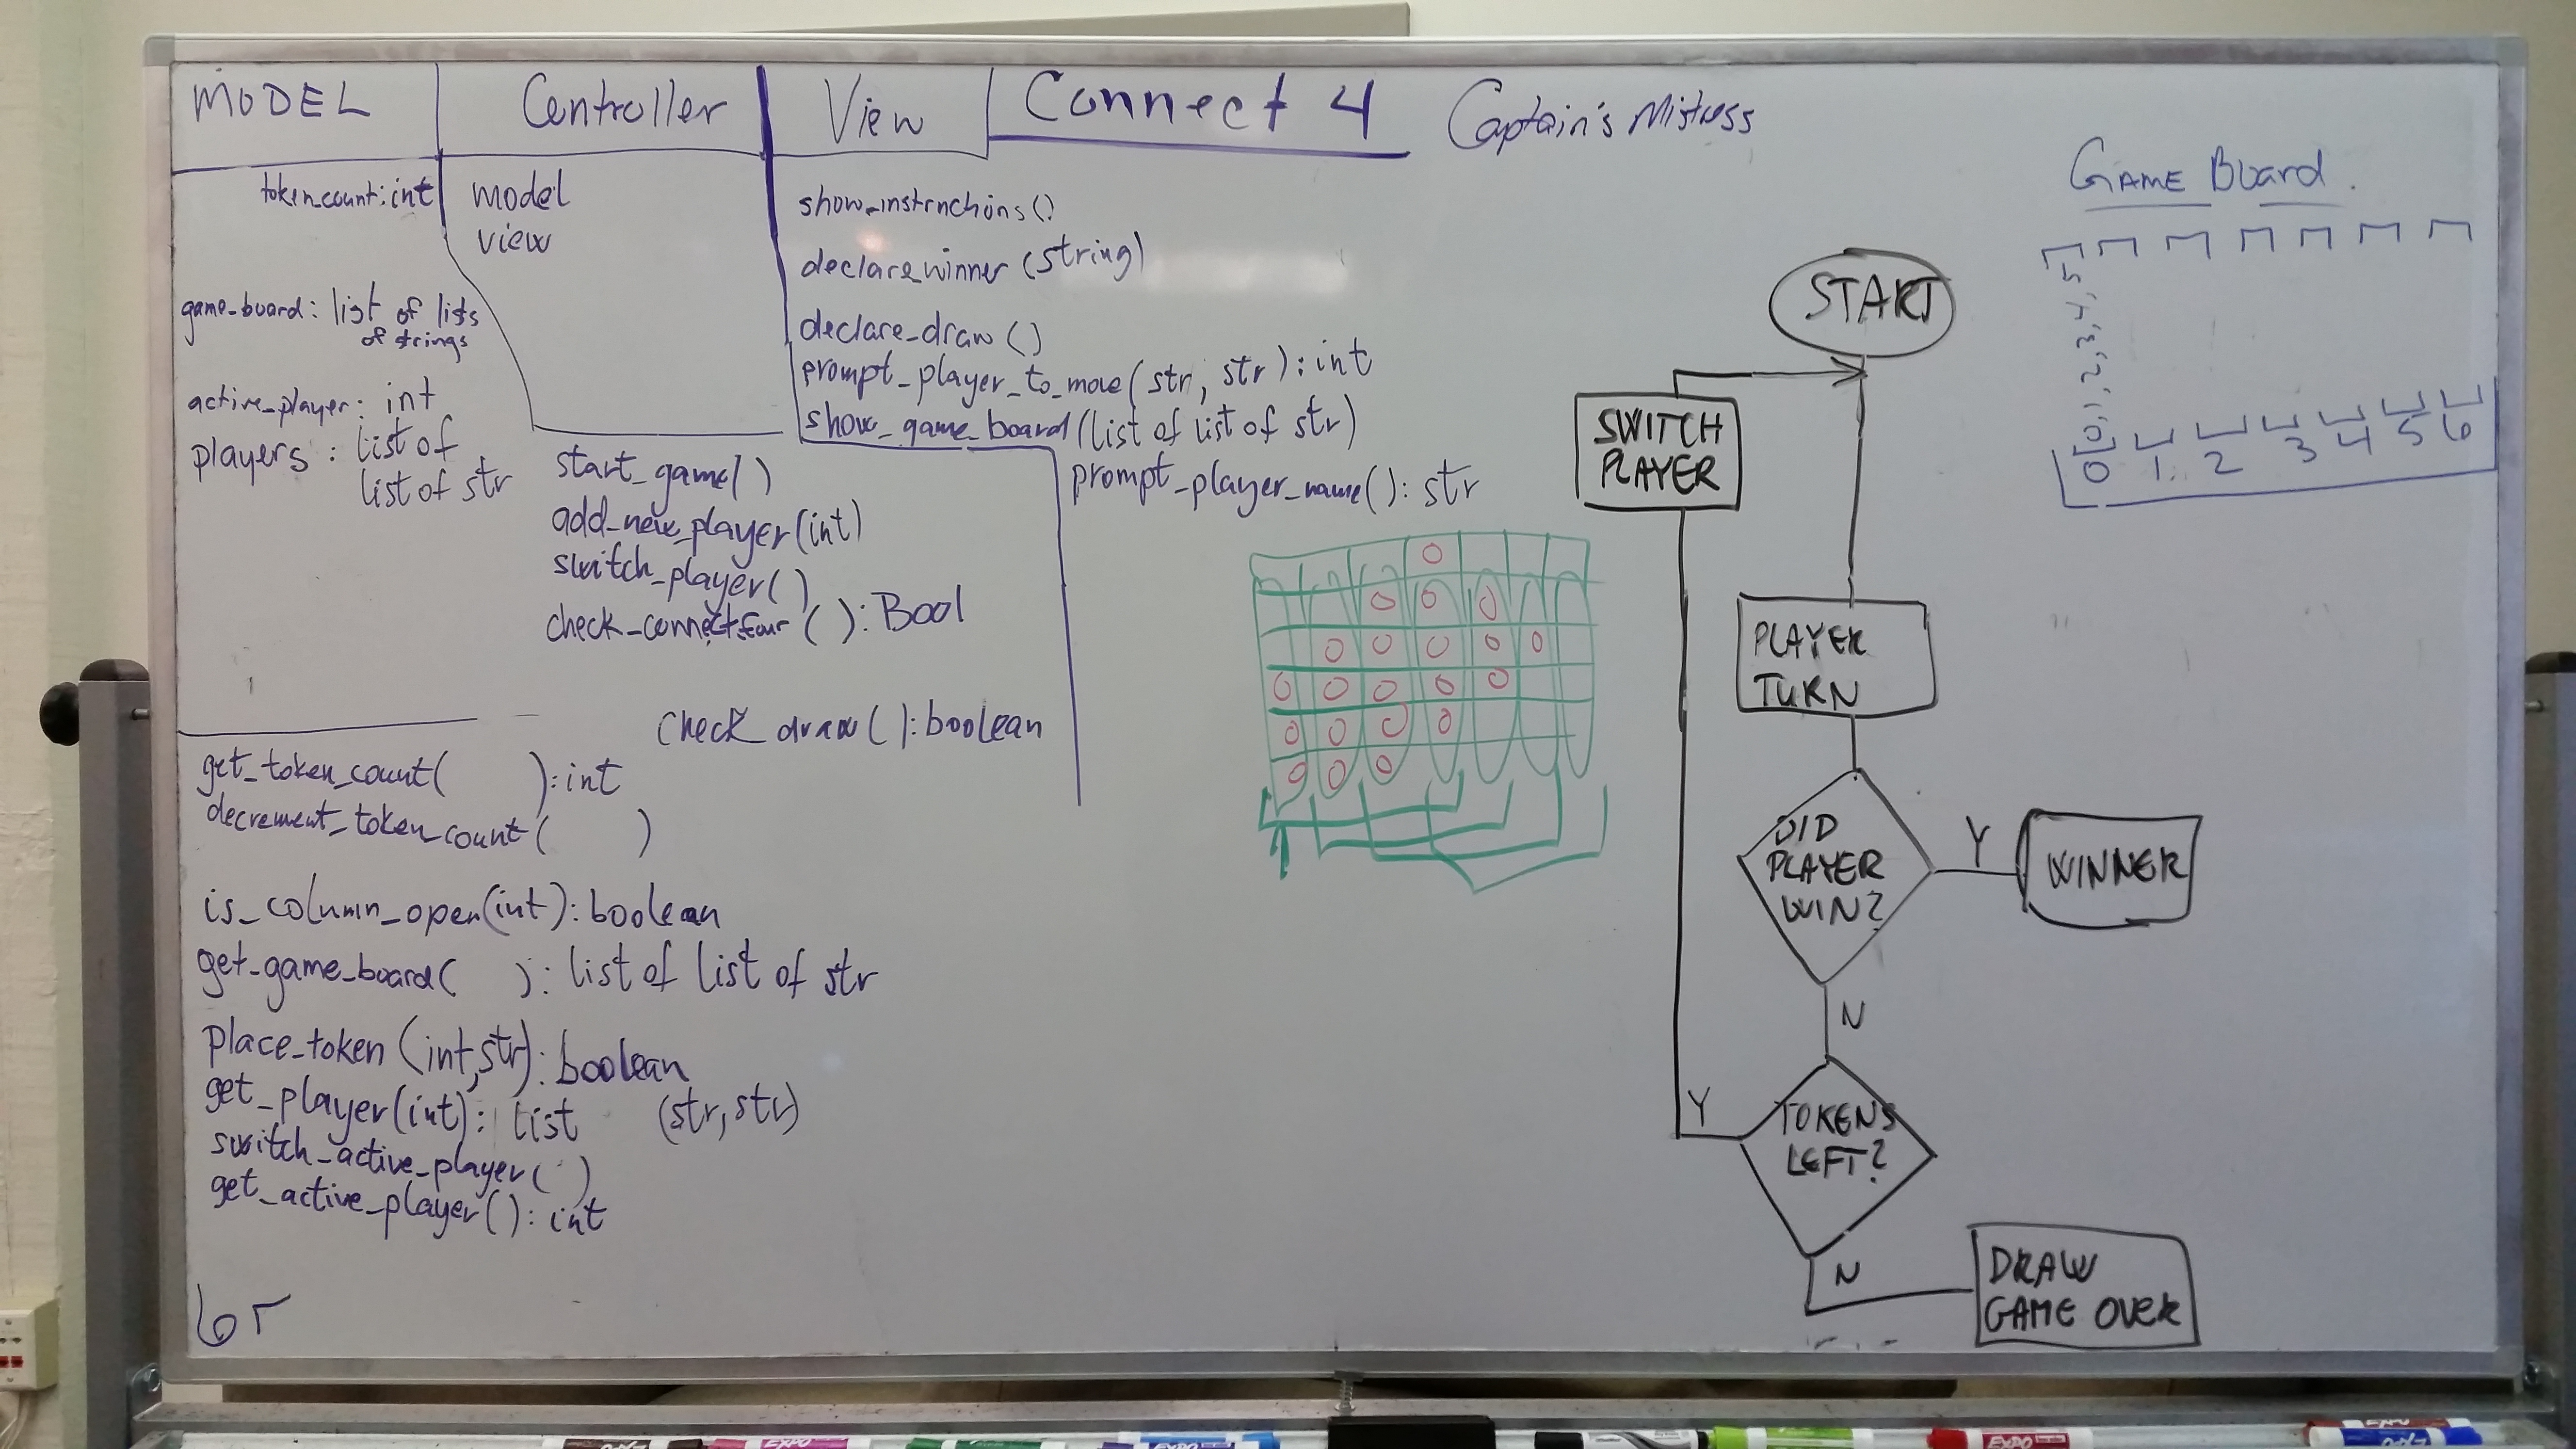 MODEL
Controller
View
Connect 4
Captain's Mistress
token_count: int
game_board: list of lists
of strings
active_player: int
players: list of
list of str
get_token_count( ): int
decrement_token_count( )
is_column_open(int): boolean
get_game_board( ): list of list of str
place_token (int, str): boolean
get_player(int): list (str, str)
switch_active_player( )
get_active_player(): int
model
view
start_game()
add_new_player(int)
switch_player( )
check_connect_four ( ): Bool
check_draw(): boolean
show_instructions()
declare_winner (string)
declare_draw ()
prompt_player_to_move(str, str): int
show_game_board(list of list of str)
prompt_player_name(): str
START
SWITCH
PLAYER
PLAYER
TURN
DID
PLAYER
WIN?
Y
WINNER
N
Y
TOKENS
LEFT?
N
DRAW
GAME OVER
GAME Board.
0, 1, 2, 3, 4, 5
0 1 2 3 4 5 6
EXPO
EXPO
EXPO